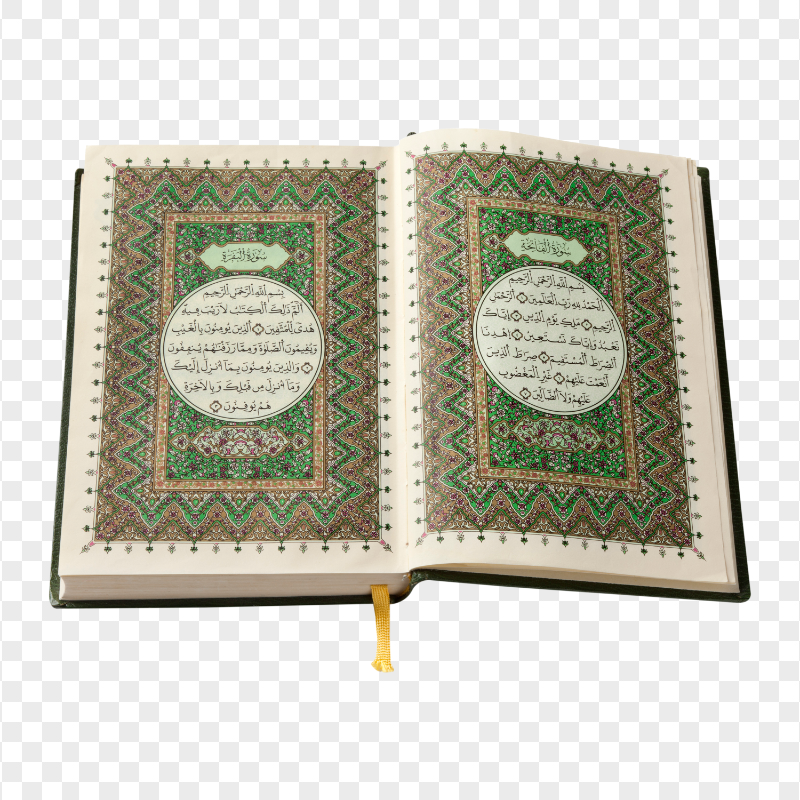 سُورَةُ الْفَاتِحَةِ
بِسْمِ اللَّهِ الرَّحْمَٰنِ الرَّحِيمِ
الْحَمْدُ لِلَّهِ رَبِّ الْعَالَمِينَ ۝ الرَّحْمَٰنِ
الرَّحِيمِ ۝ مَٰلِكِ يَوْمِ الدِّينِ ۝ إِيَّاكَ
نَعْبُدُ وَإِيَّاكَ نَسْتَعِينُ ۝ اهْدِنَا
الصِّرَٰطَ الْمُسْتَقِيمَ ۝ صِرَٰطَ الَّذِينَ
أَنْعَمْتَ عَلَيْهِمْ ۝ غَيْرِ الْمَغْضُوبِ
عَلَيْهِمْ وَلَا الضَّالِّينَ ۝
سُورَةُ الْبَقَرَةِ
بِسْمِ اللَّهِ الرَّحْمَٰنِ الرَّحِيمِ
الٓمٓ ذَٰلِكَ الْكِتَٰبُ لَا رَيْبَ فِيهِ
هُدًى لِّلْمُتَّقِينَ ۝ الَّذِينَ يُؤْمِنُونَ بِالْغَيْبِ
وَيُقِيمُونَ الصَّلَوٰةَ وَمِمَّا رَزَقْنَٰهُمْ يُنفِقُونَ
۝ وَالَّذِينَ يُؤْمِنُونَ بِمَا أُنزِلَ إِلَيْكَ
وَمَا أُنزِلَ مِن قَبْلِكَ وَبِالْآخِرَةِ
هُمْ يُوقِنُونَ ۝